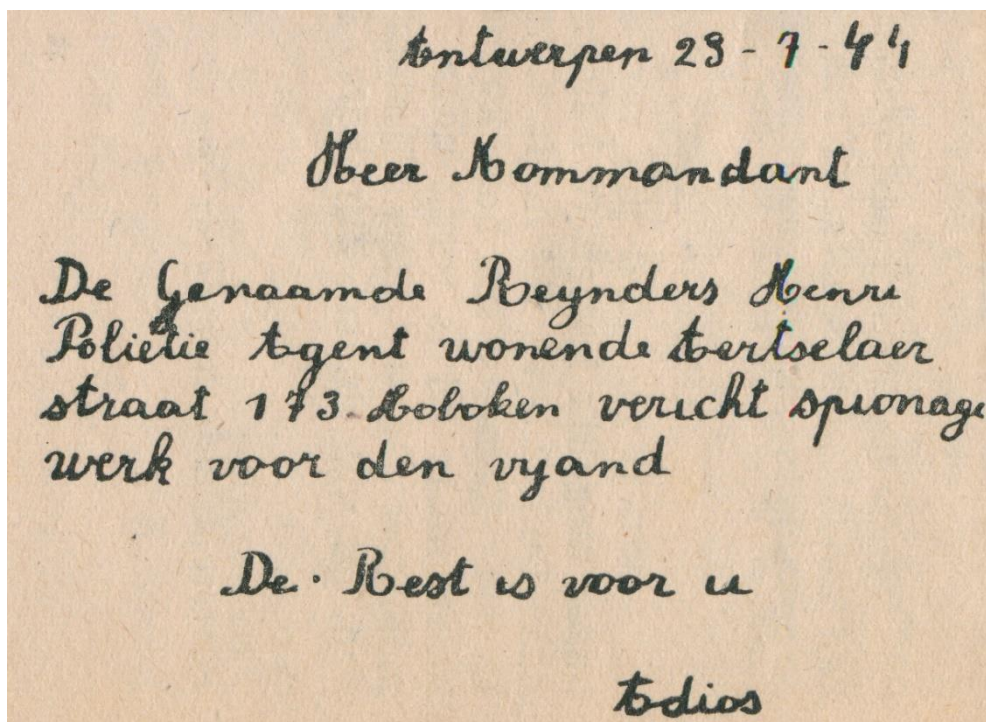 Antwerpen 29-7-44
Heer Kommandant
De Genaamde Reynders Henri
Polietie Agent wonende Aertselaer
straat 173 Hoboken vericht spionage
werk voor den vyand
De. Rest is voor u
Adios